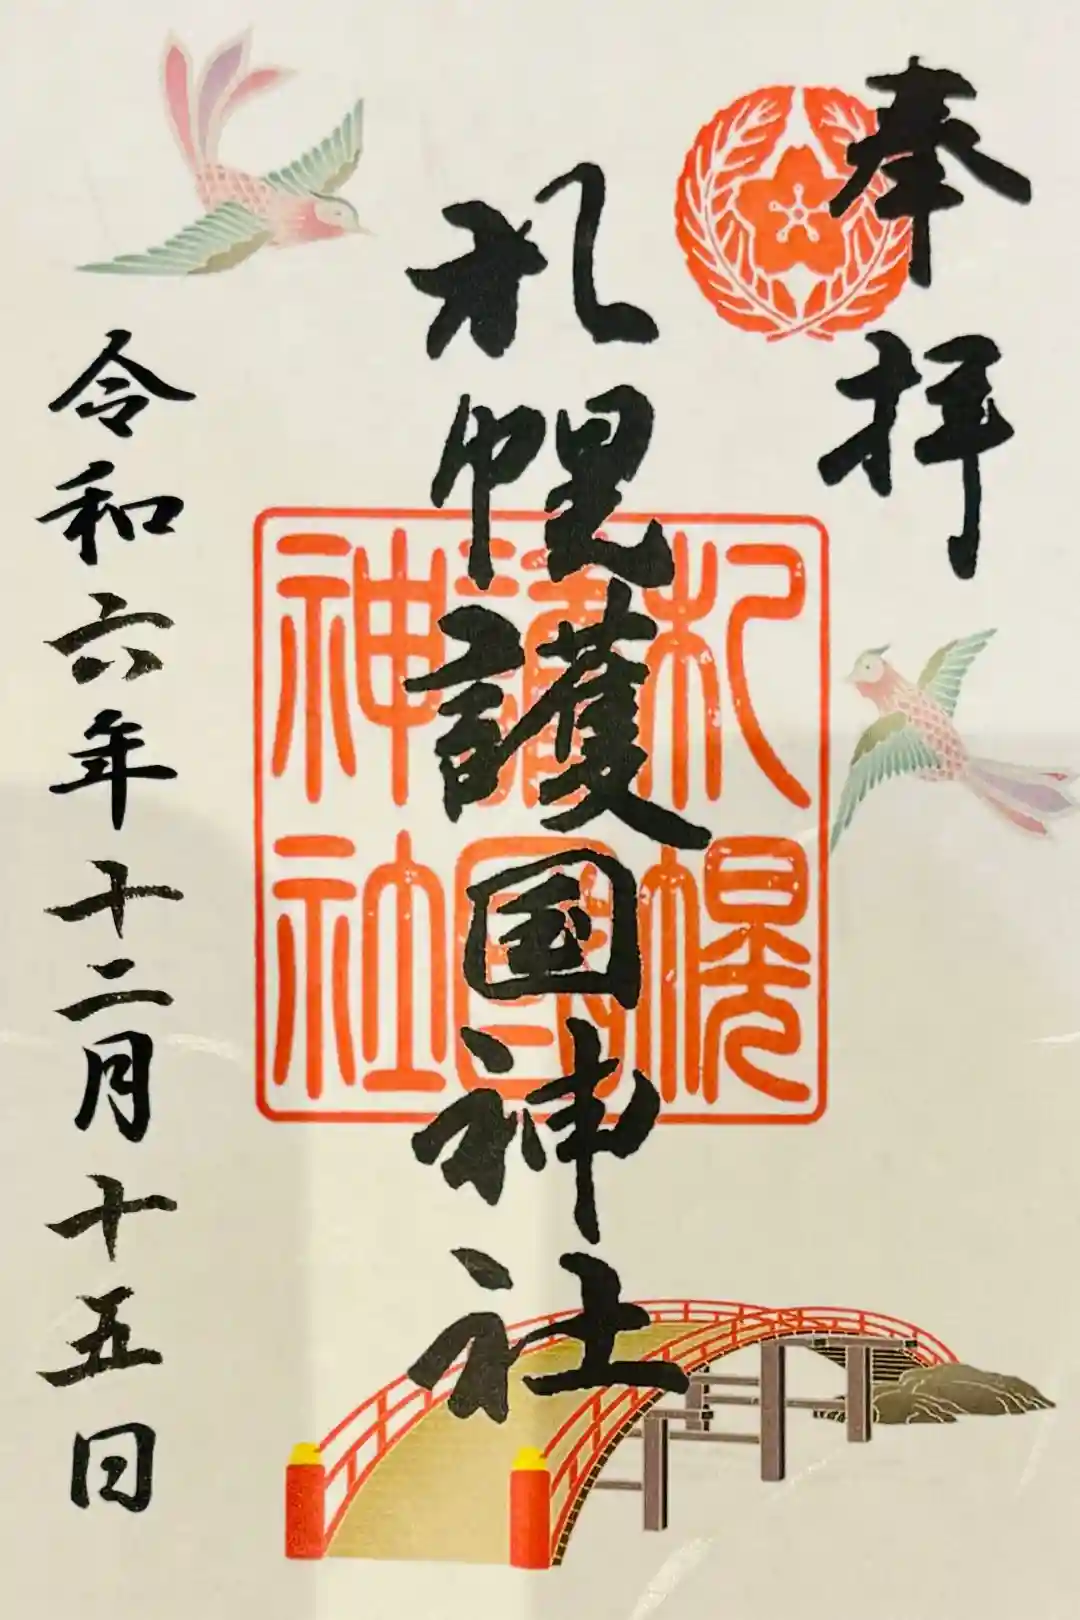 奉拝
札幌護国神社
札幌
護國
神社
令和六年十二月十五日